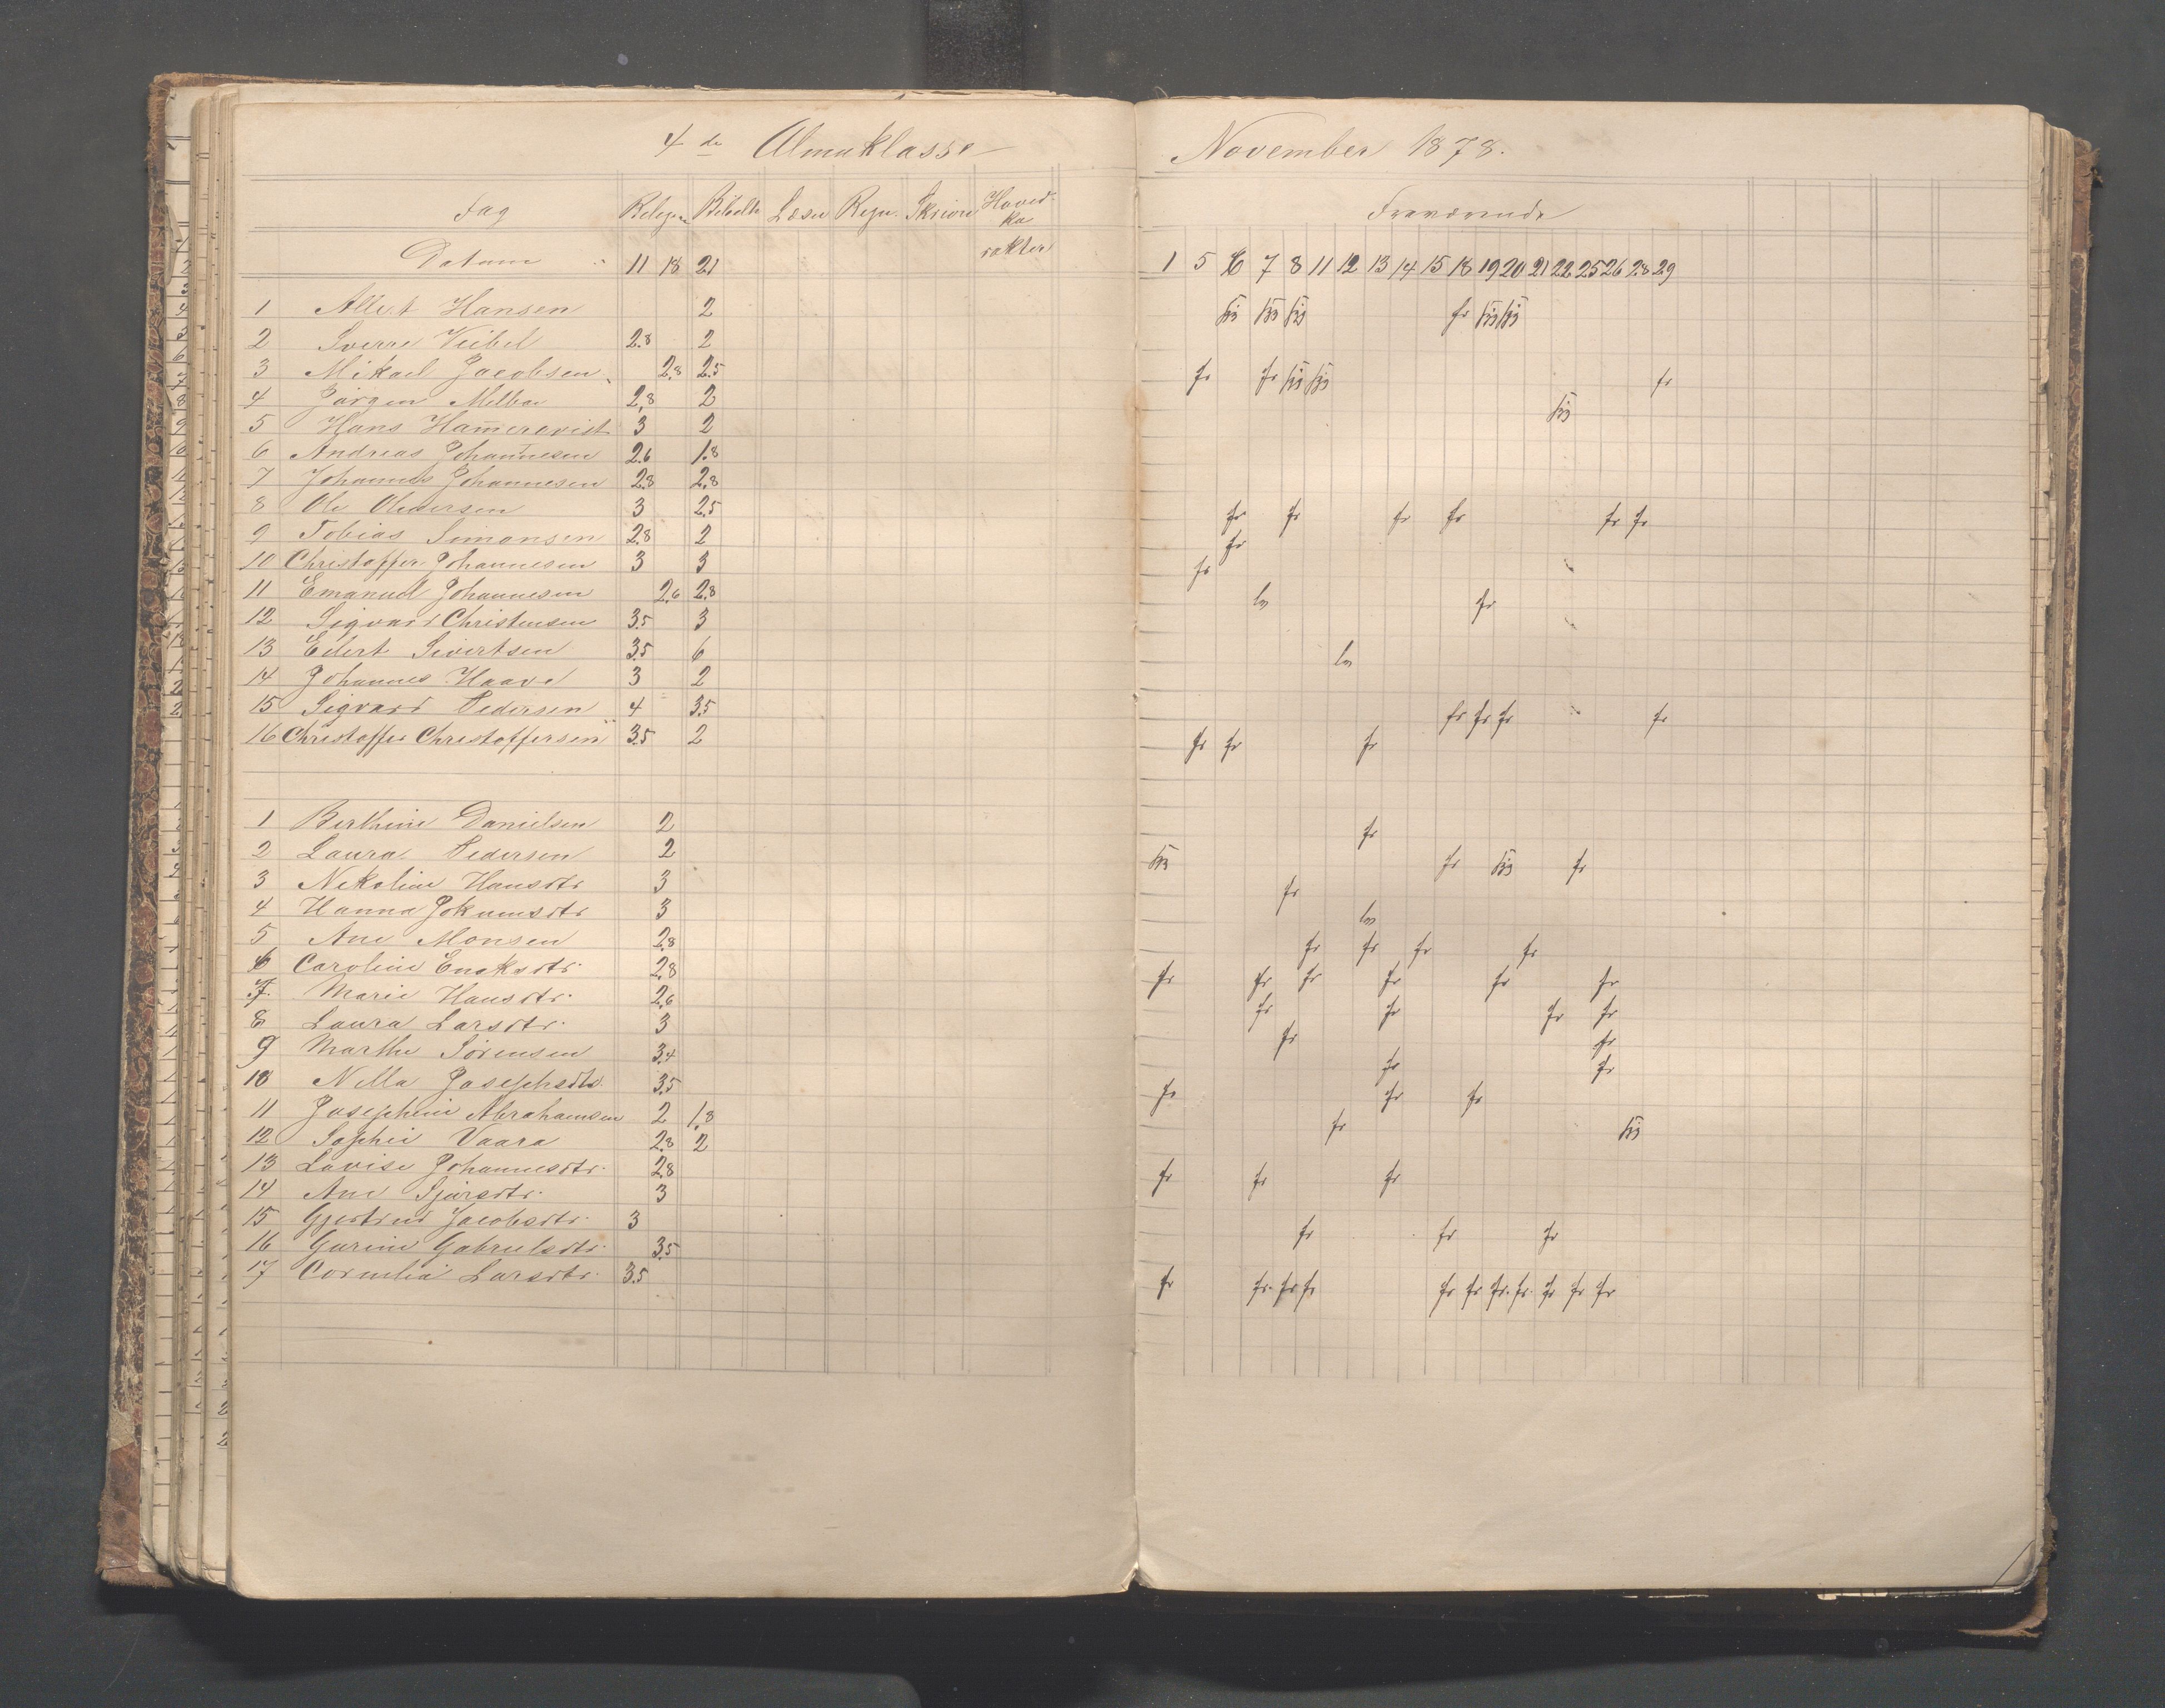 4de Almuklasse
Fag Relign Bibelh Læsn Regn. Skrivn Hoved-
ka
rakter
Datum 11 18 21
1 Albert Hansen 2
2 Sverre Veibel 2.8 2
3 Mikael Jacobsen 2.8 2.5
4 Jørgen Melbae 2.8 2
5 Hans Ham̄erqvist 3 2
6 Andreas Johannesen 2.6 1.8
7 Johannes Johannesen 2.8 2.8
8 Ole Pedersen 3 2.5
9 Tobias Simonsen 2.8 2
10 Christoffer Johannesen 3 3
11 Emanuel Johannesen 2.6 2.8
12 Sigvard Christensen 3.5 3
13 Edert Sivertsen 3.5 6
14 Johannes Haave 3 2
15 Sigvard Pedersen 4 3.5
16 Christoffer Christoffersen 3.5 2
1 Berthine Danielsen 2
2 Laura Pedersen 2
3 Nikoline Hansdtr 3
4 Hanna Jokumsdtr 3
5 Ane Monsen 2.8
6 Caroline Enoksdtr. 2.8
7. Marie Hansdtr. 2.6
8 Laura Larsdtr. 3
9 Marthe Sørensen 3.4
10 Nilla Josephsdtr 3.5
11 Josephine Abrahamsen 2 1.8
12 Sophie Vaara 2.8 2
13 Lovise Johannesdtr. 2.8
14 Ane Sjursdtr. 3
15 Gjertrud Jacobsdtr. 3
16 Gurine Gabrielsdtr. 3.5
17 Cornelia Larsdtr. 3.5
November 1878.
Fraværende
1 5 6 7 8 11 12 13 14 15 18 19 20 21 22 25 26 28 29
fr
fr fr fr
fr fr fr fr fr fr
fr
fr
fr
fr fr fr fr
fr fr fr
fr
fr fr
fr
fr fr fr fr
fr fr fr fr fr fr
fr fr fr fr
fr fr
fr fr
fr fr fr
fr
fr fr fr
fr fr fr
fr fr. fr fr fr fr fr. fr. fr fr fr